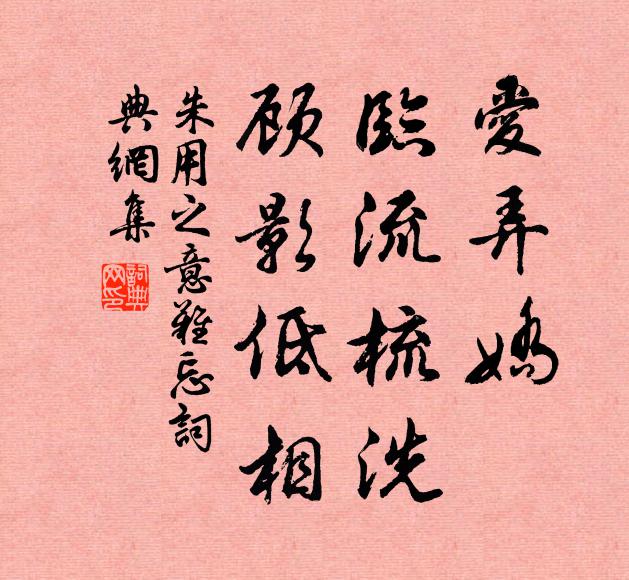 愛弄嬌
臨流梳洗
顾影低相
朱用之意難忘詞
典網集
詞典网印